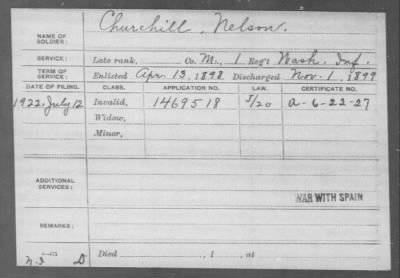 NAME OF SOLDIER: Churchill, Nelson.
SERVICE: Late rank, Co. M., 1 Reg't Wash. Inf.
TERM OF SERVICE: Enlisted Apr. 13, 1898 Discharged Nov. 1, 1899
DATE OF FILING. CLASS. APPLICATION NO. LAW. CERTIFICATE NO.
1922. July 12 Invalid, 1469518 5/20 A-6-22-27
Widow,
Minor,
ADDITIONAL SERVICES:
WAR WITH SPAIN
REMARKS:
Died , 1 , at